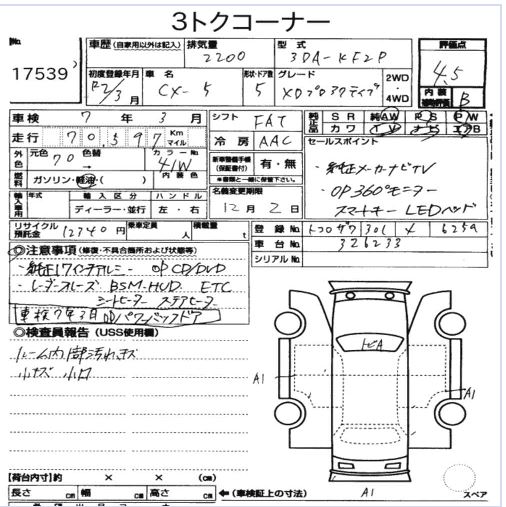 3トクコーナー
№ 17539
車歴 (自家用以外は記入) 排気量 2200 型式 3DA-KF2P 評価点 4.5
初度登録年月 R2/3月 車名 CX-5 形状・ドア数 5 グレード XDプロアクティブ 2WD・4WD 内装 B
車検 7年3月 シフト FAT 純正品 SR 純AW PS PW
カワ TV ナビ エアB
走行 70,597 Km マイル 冷房 AAC セールスポイント
外色 元色 70 色替 → カラー№ 41W 新車整備手帳 (保証書付) 有・無 ・純正メーカーナビTV
燃料 ガソリン・軽油・( ) 内装色 名義変更期限 ・OP360°モニター
輸入車用 年式 輸入区分 ハンドル 12月2日 スマートキー LEDヘッド
ディーラー・並行 左・右
リサイクル預託金 12340円 乗車定員 人 積載量 t 登録№ トコロザワ 301
車台№ 326233
シリアル№
◎注意事項 (修復・不具合箇所および状態等)
・純正17インチアルミ OP CD/DVD
・レーダークルーズ BSM・HUD ETC
シートヒーター ステアヒーター
車検7年3月 OPパワーバックドア
◎検査員報告 (USS使用欄)
ルーム内一部汚れキズ
小キズ 小凹
トビA
A1
A1
A1
【荷台内寸】約 × × (㎝)
長さ ㎝ 幅 ㎝ 高さ ㎝ ← (車検証上の寸法)
スペア